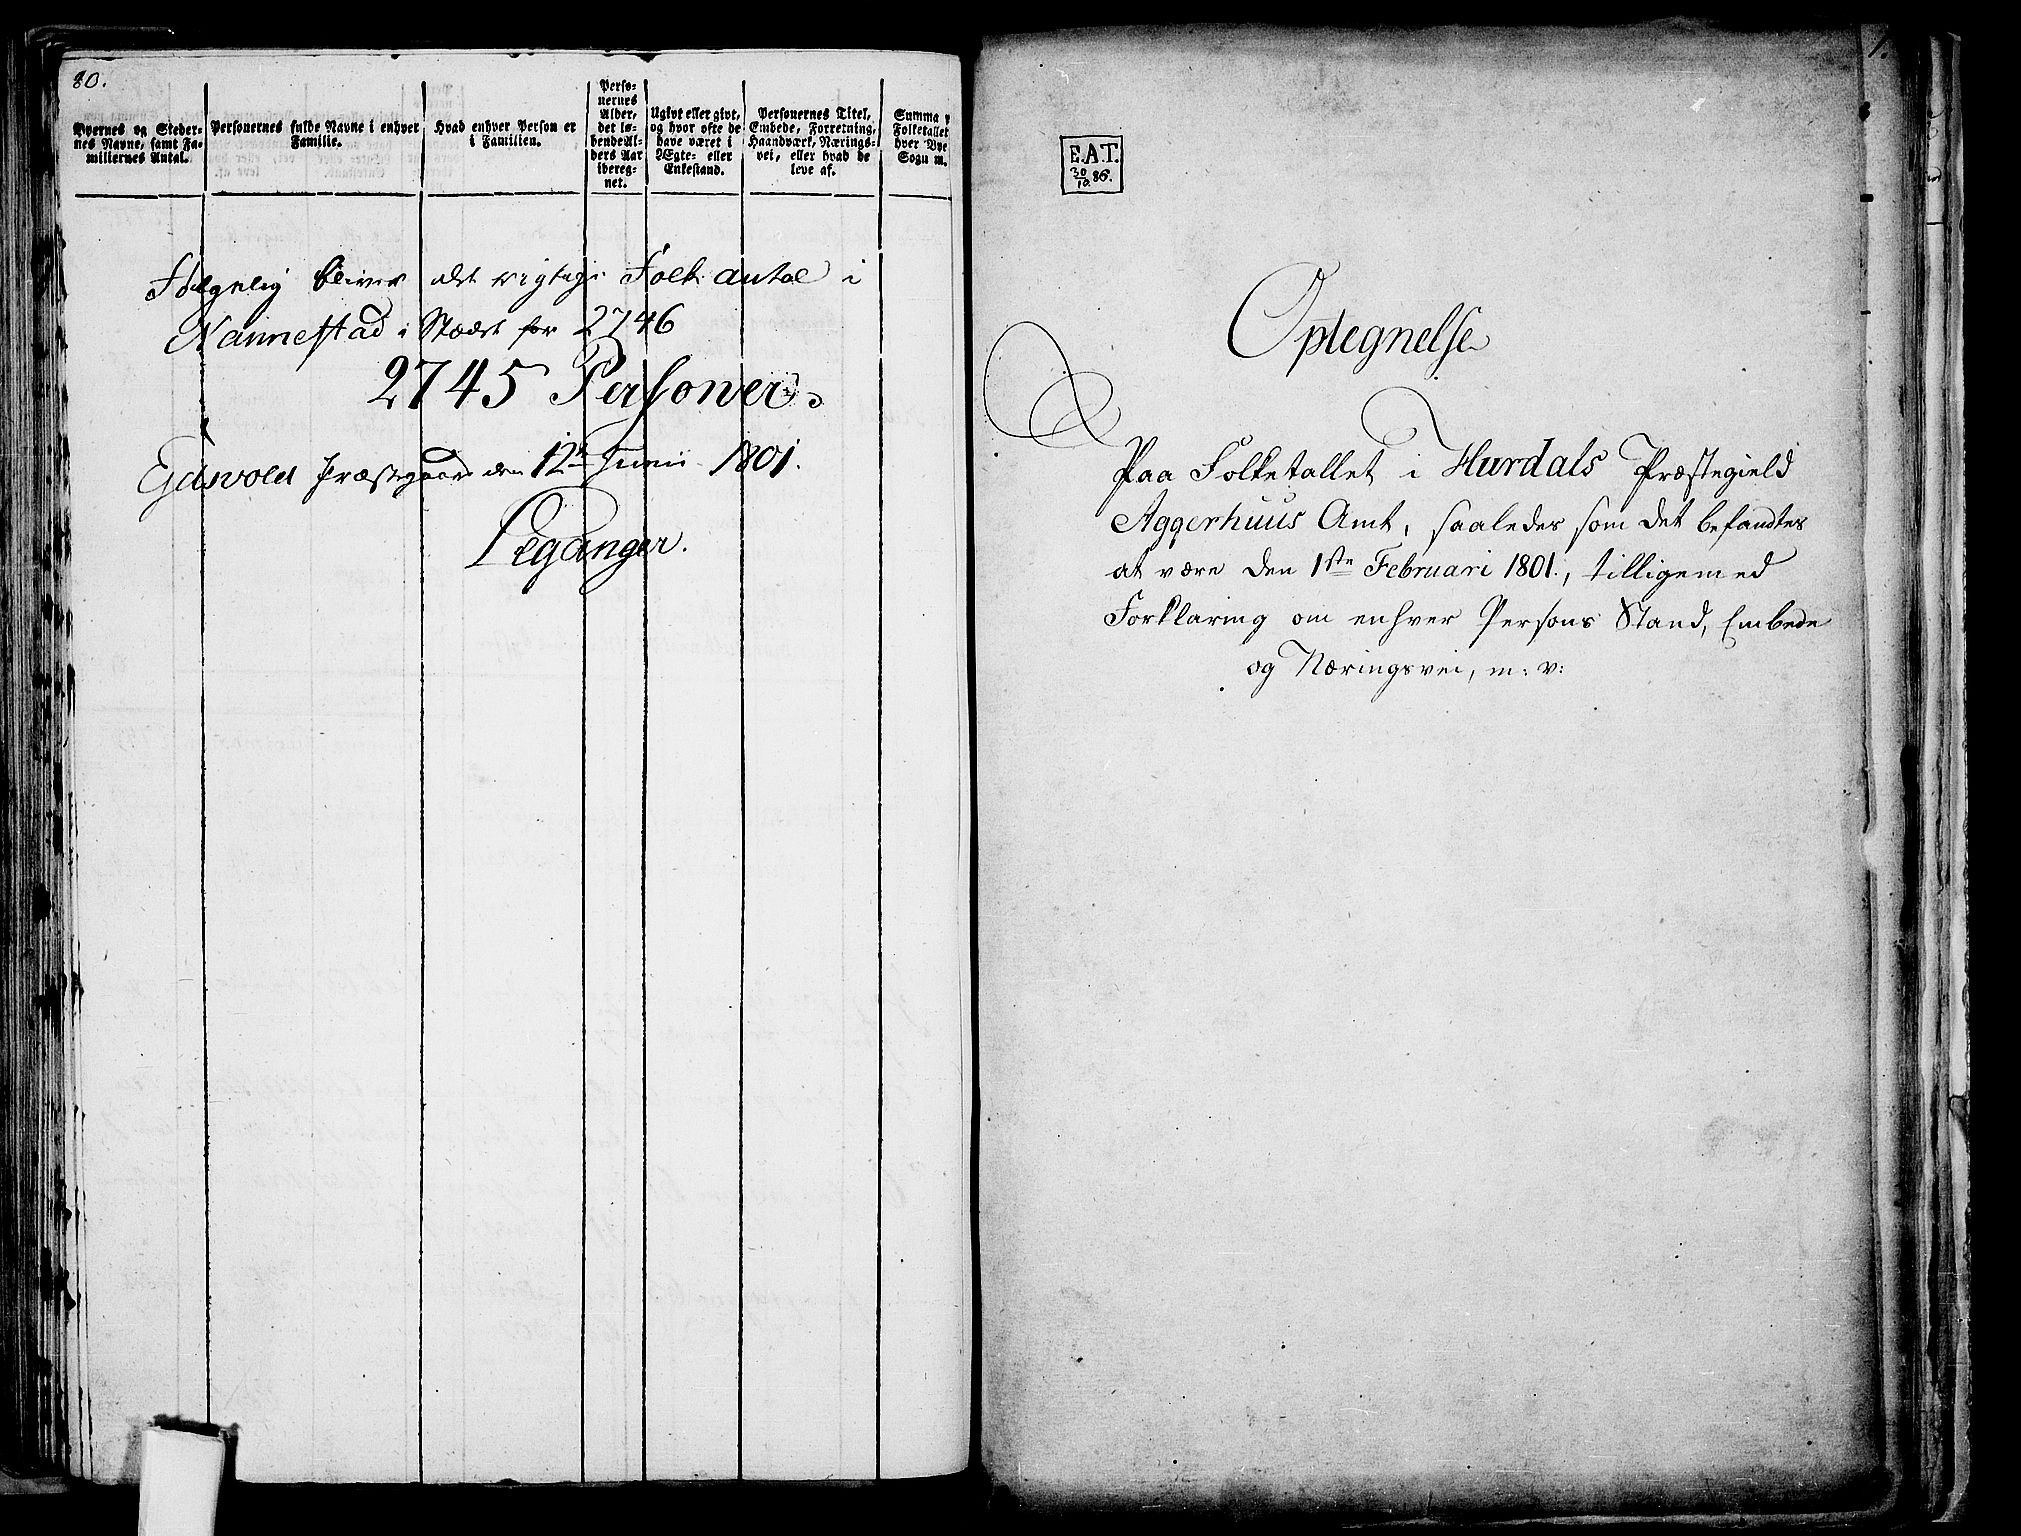 80.
Byernes og Steder-
nes Navne, samt Fa-
miliernes Antal.
Personernes fulde Navne i enhver
Familie.
Hvad enhver Person er
i Familien.
Perso-
nernes
Alder,
det lø-
bende Al-
ders Aar
ibereg-
net.
Ugivt eller givt,
og hvor ofte de
have været i
Ægte- eller
Enkestand.
Personernes Titel,
Embede, Forretning,
Haandværk, Nærings-
vei, eller hvad de
leve af.
Summa
Folketallet
hver Bye
Sogn m.
Følgelig bliver det rigtige Folk antal i
Nannestad i Stædet for 2746
2745 Personer.
Eidsvold Præstegaard den 12te Junii 1801.
Leganger.
1.
E.A.T.
30/10.86.
Optegnelse
Paa Folketallet i Hurdals Præstegield
Aggerhuus Amt, saaledes som det befandtes
at være den 1ste Februari 1801., tilligemed
Forklaring om enhver Persons Stand, Embede
og Næringsvei, m: v: